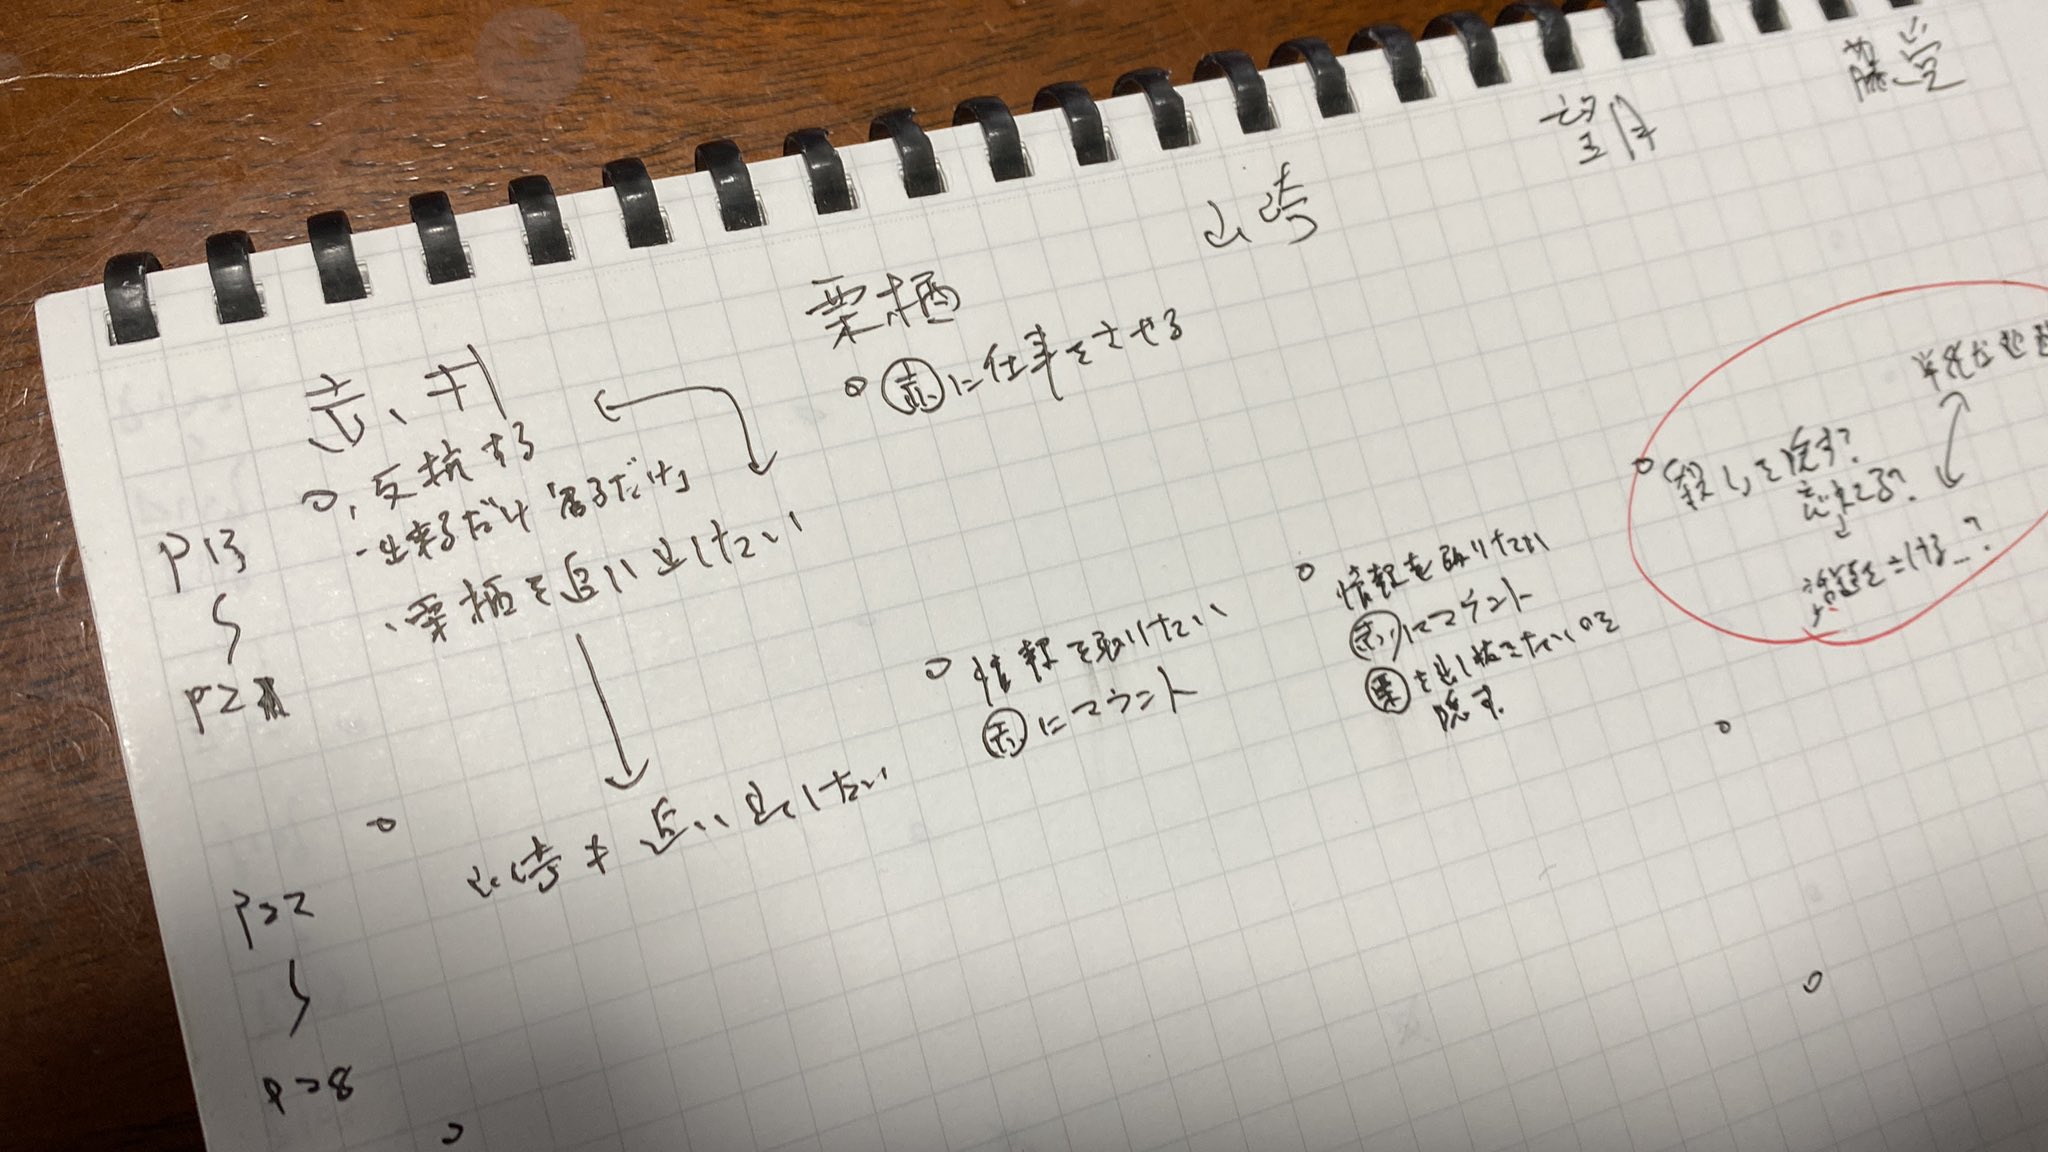 藤堂
望月
山崎
栗栖
赤井
赤に仕事をさせる
反抗する
出来るだけ「居るだけ」
栗栖を追い出したい
P13
P21
情報を取りたい
赤にマウント
情報を取りたい
赤にマウント
栗を出し抜きたいのを
隠す。
殺しを
山崎も追い出したい
P22
P28